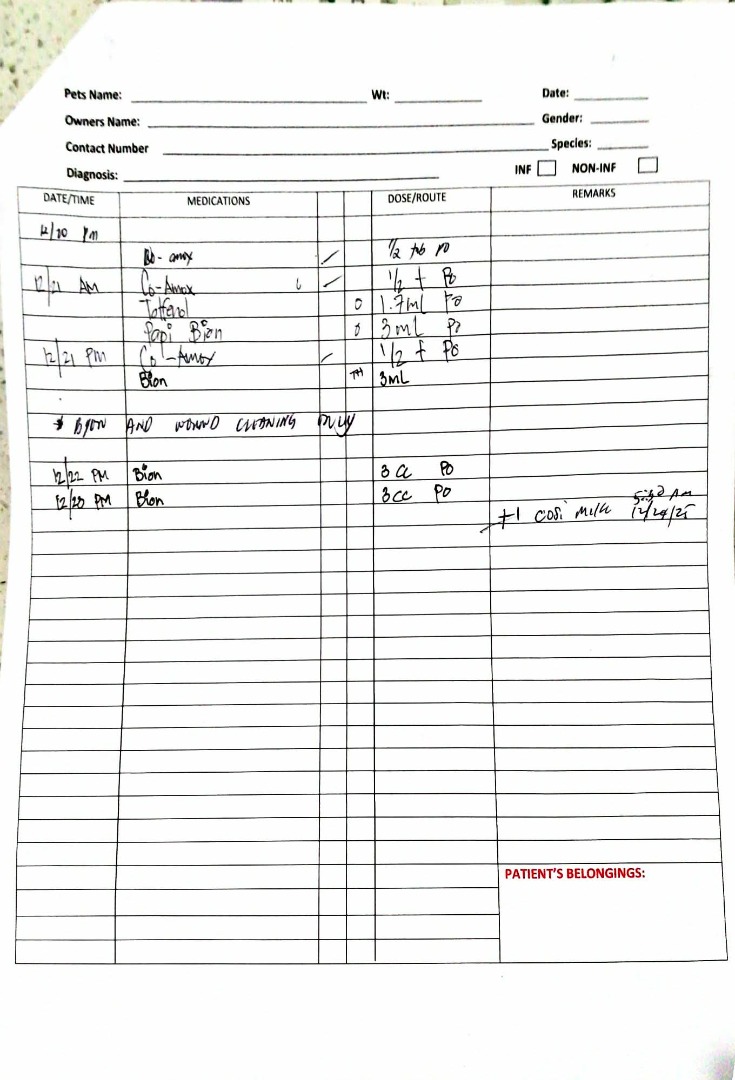 Pets Name: Wt: Date:
Owners Name: Gender:
Contact Number Species:
Diagnosis: INF NON-INF
DATE/TIME MEDICATIONS DOSE/ROUTE REMARKS
12/20 PM
-amox 1/2 tab PO
12/21 AM Co-Amox 1/2 t PO
1.7ml PO
Papi Bion 3ml PO
12/21 PM Co-Amox 1/2 t PO
Bion 3mL
* BION AND WOUND CLEANING ONLY
12/22 PM Bion 3 cc PO
12/23 PM Bion 3cc PO
+1 cosi milk AM 12/24/25
PATIENT'S BELONGINGS: